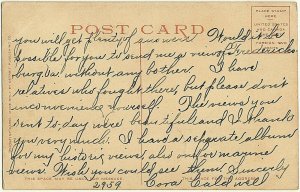 POST CARD
PLACE STAMP HERE
UNITED STATES
FOREIGN
you will get plenty of answers. Would it be
possible for you to send me a view of Fredericks-
burg Va. without any bother. I have
relatives who fought there, but please don't
inconvenience yourself. The views you
sent to-day were beautiful and I thank
you very much. I have a separate album
for my historic views, also one for marine
views. Wish you could see them. Sincerely
2959 Cora Caldwell